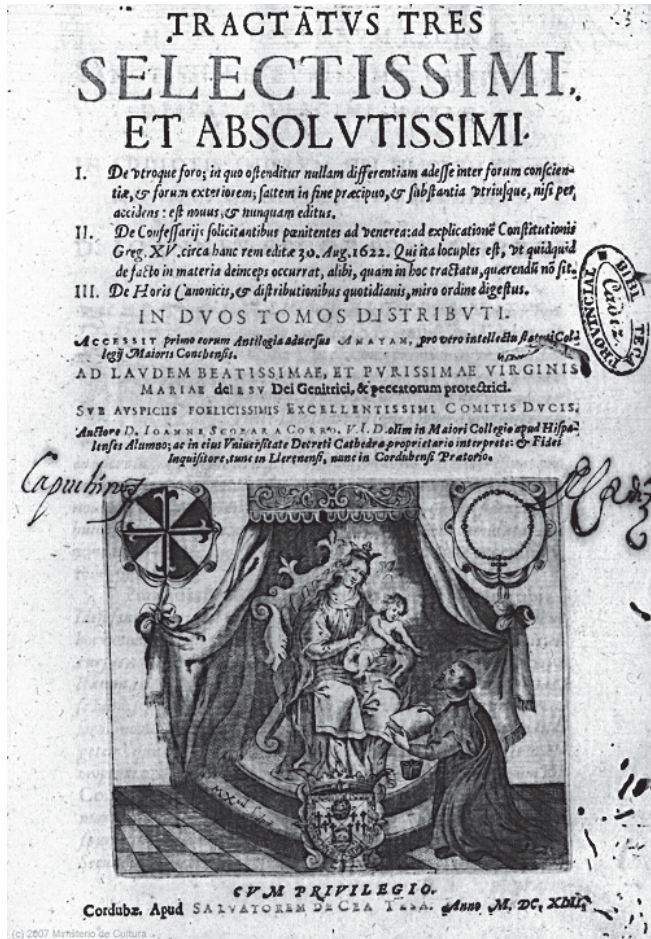 TRACTATVS TRES
SELECTISSIMI,
ET ABSOLVTISSIMI.
I. De vtroque foro; in quo ostenditur nullam differentiam adesse inter forum conscien-
tiæ, & forum exteriorem; saltem in fine præcipuo, & substantia vtriusque, nisi per
accidens: est nouus, & nunquam editus.
II. De Confessarijs solicitantibus pœnitentes ad venerea: ad explicationē Constitutionis
Greg. XV. circa hanc rem editæ 30. Aug. 1622. Qui ita locuples est, vt quidquid
de facto in materia deinceps occurrat, alibi, quam in hoc tractatu, quærendū nō sit.
III. De Horis Canonicis, & distributionibus quotidianis, miro ordine digestus.
IN DVOS TOMOS DISTRIBVTI.
ACCESSIT primo eorum Antilogia aduersus AMAYAM, pro vero intellectu statuti Col-
legij Maioris Conchensis.
AD LAVDEM BEATISSIMAE, ET PVRISSIMAE VIRGINIS
MARIAE de IESV Dei Genitrici, & peccatorum protectrici.
SVB AVSPICIIS FOELICISSIMIS EXCELLENTISSIMI COMITIS DVCIS.
Auctore D. IOANNE ESCOBAR A CORRO, V. I. D. olim in Maiori Collegio apud Hispa-
lenses Alumno; ac in eius Vniuersitate Decreti Cathedræ proprietario interprete: & Fidei
Inquisitore, tunc in Llerenensi, nunc in Cordubensi Prætorio.
BIBLIOTECA PROVINCIAL
Cádiz
Capuchinos
CVM PRIVILEGIO.
Cordubæ. Apud SALVATOREM DE CEA TESA. Anno M. DC. XLII.
(c) 2007 Ministerio de Cultura